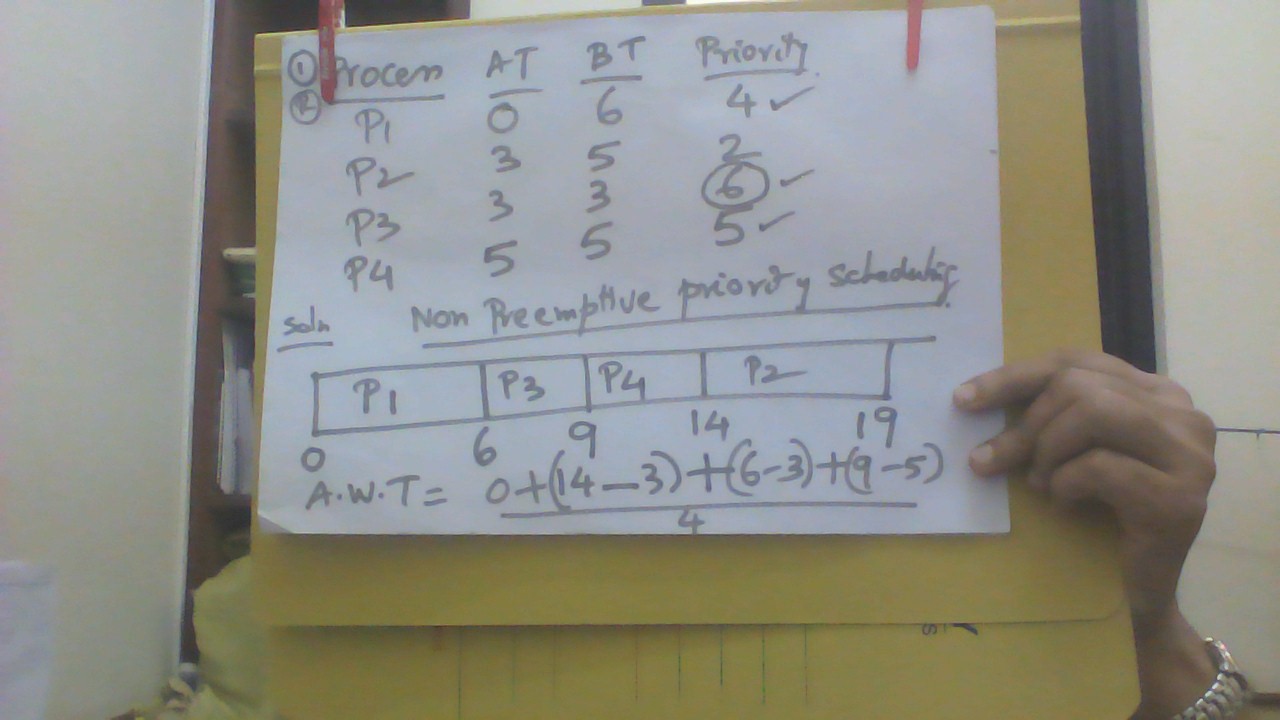 ① Process AT BT Priority
② P1 0 6 4 ✓
P2 3 5 2
P3 3 3 6 ✓
P4 5 5 5 ✓
Soln Non Preemptive priority scheduling.
P1 P3 P4 P2
0 6 9 14 19
A.W.T = 0+(14-3)+(6-3)+(9-5)
4